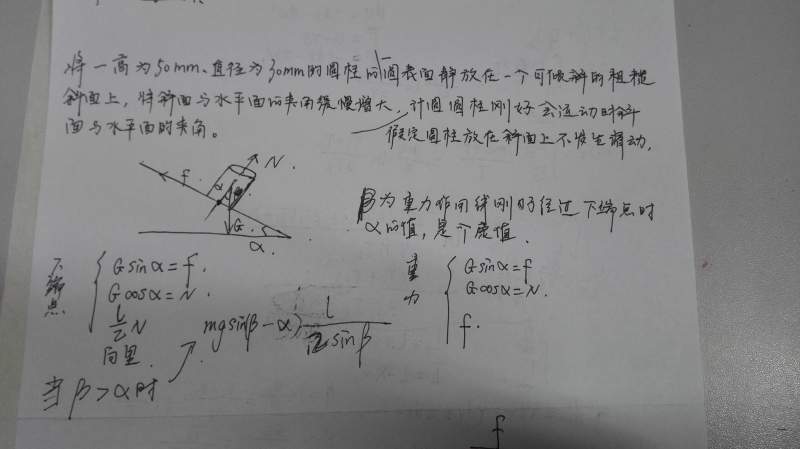 将一高为50mm、直径为30mm的圆柱的圆表面静放在一个可倾斜的粗糙
斜面上，将斜面与水平面的夹角缓慢增大，计圆圆柱刚好会运动时斜
面与水平面的夹角。
假定圆柱放在斜面上不发生滑动.
f.
α
N.
G.
α.
β为重力作用线刚好经过下端点时
α的值，是个定值.
下端点
Gsinα=f.
Gcosα=N.
L/2 N
向里.
mgsin(β-α) L/2sinβ
当β>α时
重力
Gsinα=f
Gcosα=N.
f.
f